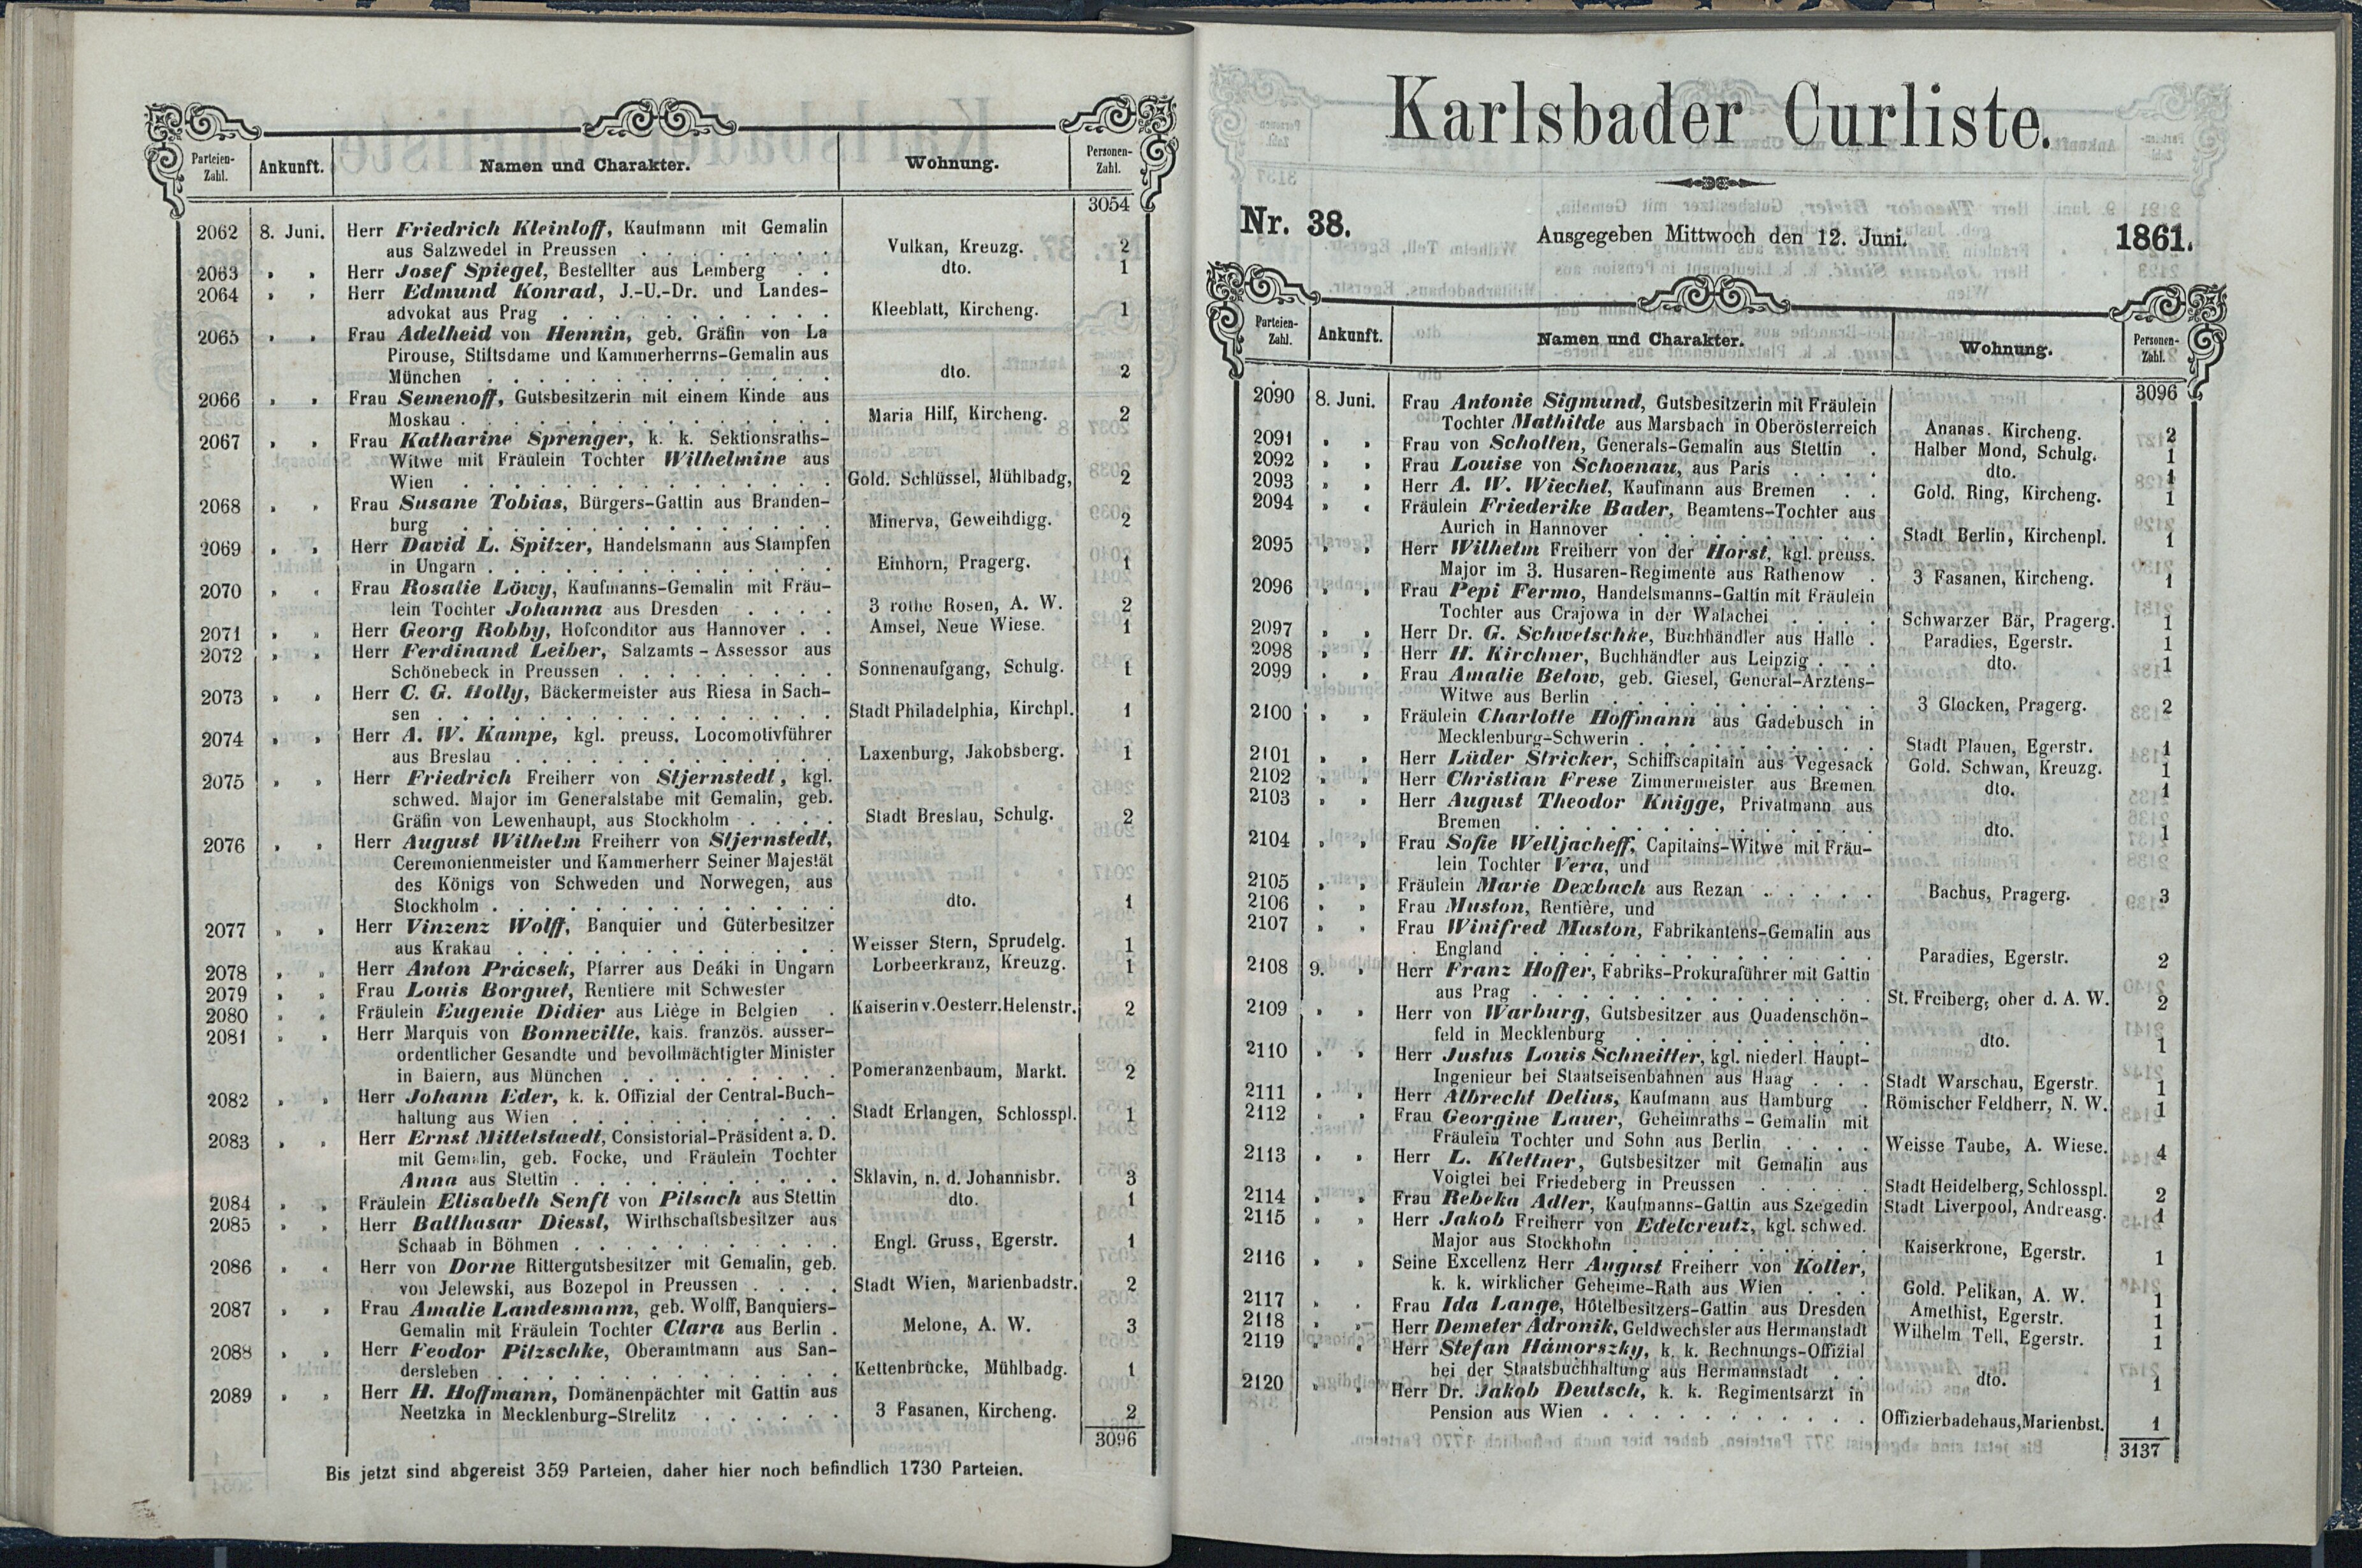 Parteien-Zahl. Ankunft. Namen und Charakter. Wohnung. Personen-Zahl.
3054
2062 8. Juni. Herr Friedrich Kleinloff, Kaufmann mit Gemalin
aus Salzwedel in Preussen . . . . . . . Vulkan, Kreuzg. 2
2063 „ „ Herr Josef Spiegel, Bestellter aus Lemberg . . dto. 1
2064 „ „ Herr Edmund Konrad, J.-U.-Dr. und Landes-
advokat aus Prag . . . . . . . . . . Kleeblatt, Kircheng. 1
2065 „ „ Frau Adelheid von Hennin, geb. Gräfin von La
Pirouse, Stiftsdame und Kammerherrns-Gemalin aus
München . . . . . . . . . . . . . dto. 2
2066 „ „ Frau Semenoff, Gutsbesitzerin mit einem Kinde aus
Moskau . . . . . . . . . . . . . . Maria Hilf, Kircheng. 2
2067 „ „ Frau Katharine Sprenger, k. k. Sektionsraths-
Witwe mit Fräulein Tochter Wilhelmine aus
Wien . . . . . . . . . . . . . . Gold. Schlüssel, Mühlbadg, 2
2068 „ „ Frau Susane Tobias, Bürgers-Gattin aus Branden-
burg . . . . . . . . . . . . . . Minerva, Geweihdigg. 2
2069 „ „ Herr David L. Spitzer, Handelsmann aus Stampfen
in Ungarn . . . . . . . . . . . . . Einhorn, Pragerg. 1
2070 „ „ Frau Rosalie Löwy, Kaufmanns-Gemalin mit Fräu-
lein Tochter Johanna aus Dresden . . . . 3 rothe Rosen, A. W. 2
2071 „ „ Herr Georg Robby, Hofconditor aus Hannover . . Amsel, Neue Wiese. 1
2072 „ „ Herr Ferdinand Leiber, Salzamts-Assessor aus
Schönebeck in Preussen . . . . . . . . Sonnenaufgang, Schulg. 1
2073 „ „ Herr C. G. Holly, Bäckermeister aus Riesa in Sach-
sen . . . . . . . . . . . . . . . Stadt Philadelphia, Kirchpl. 1
2074 „ „ Herr A. W. Kampe, kgl. preuss. Locomotivführer
aus Breslau . . . . . . . . . . . . Laxenburg, Jakobsberg. 1
2075 „ „ Herr Friedrich Freiherr von Stjernstedt, kgl.
schwed. Major im Generalstabe mit Gemalin, geb.
Gräfin von Lewenhaupt, aus Stockholm . . . . Stadt Breslau, Schulg. 2
2076 „ „ Herr August Wilhelm Freiherr von Stjernstedt,
Ceremonienmeister und Kammerherr Seiner Majestät
des Königs von Schweden und Norwegen, aus
Stockholm . . . . . . . . . . . . . dto. 1
2077 „ „ Herr Vinzenz Wolff, Banquier und Güterbesitzer
aus Krakau . . . . . . . . . . . . Weisser Stern, Sprudelg. 1
2078 „ „ Herr Anton Prácsek, Pfarrer aus Deáki in Ungarn Lorbeerkranz, Kreuzg. 1
2079 „ „ Frau Louis Borguet, Rentiere mit Schwester
2080 „ „ Fräulein Eugenie Didier aus Liège in Belgien . Kaiserin v. Oesterr. Helenstr. 2
2081 „ „ Herr Marquis von Bonneville, kais. französ. ausser-
ordentlicher Gesandte und bevollmächtigter Minister
in Baiern, aus München . . . . . . . . Pomeranzenbaum, Markt. 2
2082 „ „ Herr Johann Eder, k. k. Offizial der Central-Buch-
haltung aus Wien . . . . . . . . . . Stadt Erlangen, Schlosspl. 1
2083 „ „ Herr Ernst Mittelstaedt, Consistorial-Präsident a. D.
mit Gemalin, geb. Focke, und Fräulein Tochter
Anna aus Stettin . . . . . . . . . . Sklavin, n. d. Johannisbr. 3
2084 „ „ Fräulein Elisabeth Senft von Pilsach aus Stettin dto. 1
2085 „ „ Herr Balthasar Diessl, Wirthschaftsbesitzer aus
Schaab in Böhmen . . . . . . . . . . Engl. Gruss, Egerstr. 1
2086 „ „ Herr von Dorne Rittergutsbesitzer mit Gemalin, geb.
von Jelewski, aus Bozepol in Preussen . . . . Stadt Wien, Marienbadstr. 2
2087 „ „ Frau Amalie Landesmann, geb. Wolff, Banquiers-
Gemalin mit Fräulein Tochter Clara aus Berlin . Melone, A. W. 3
2088 „ „ Herr Feodor Pilzschke, Oberamtmann aus San-
dersleben . . . . . . . . . . . . . Kettenbrücke, Mühlbadg. 1
2089 „ „ Herr H. Hoffmann, Domänenpächter mit Gattin aus
Neetzka in Mecklenburg-Strelitz . . . . . . 3 Fasanen, Kircheng. 2
3096
Bis jetzt sind abgereist 359 Parteien, daher hier noch befindlich 1730 Parteien.
Karlsbader Curliste.
Nr. 38. Ausgegeben Mittwoch den 12. Juni. 1861.
Parteien-Zahl. Ankunft. Namen und Charakter. Wohnung. Personen-Zahl.
3096
2090 8. Juni. Frau Antonie Sigmund, Gutsbesitzerin mit Fräulein
Tochter Mathilde aus Marsbach in Oberösterreich Ananas. Kircheng. 2
2091 „ „ Frau von Schollen, Generals-Gemalin aus Stettin . Halber Mond, Schulg. 1
2092 „ „ Frau Louise von Schoenau, aus Paris . . . . dto. 1
2093 „ „ Herr A. W. Wiechel, Kaufmann aus Bremen . . Gold. Ring, Kircheng. 1
2094 „ „ Fräulein Friederike Bader, Beamtens-Tochter aus
Aurich in Hannover . . . . . . . . . Stadt Berlin, Kirchenpl. 1
2095 „ „ Herr Wilhelm Freiherr von der Horst, kgl. preuss.
Major im 3. Husaren-Regimente aus Rathenow . 3 Fasanen, Kircheng. 1
2096 „ „ Frau Pepi Fermo, Handelsmanns-Gattin mit Fräulein
Tochter aus Crajowa in der Walachei . . . . Schwarzer Bär, Pragerg. 1
2097 „ „ Herr Dr. G. Schwetschke, Buchhändler aus Halle . Paradies, Egerstr. 1
2098 „ „ Herr H. Kirchner, Buchhändler aus Leipzig . . . dto. 1
2099 „ „ Frau Amalie Below, geb. Giesel, General-Arztens-
Witwe aus Berlin . . . . . . . . . . 3 Glocken, Pragerg. 2
2100 „ „ Fräulein Charlotte Hoffmann aus Gadebusch in
Mecklenburg-Schwerin . . . . . . . . . Stadt Plauen, Egerstr. 1
2101 „ „ Herr Lüder Stricker, Schiffscapitain aus Vegesack Gold. Schwan, Kreuzg. 1
2102 „ „ Herr Christian Frese Zimmermeister aus Bremen dto. 1
2103 „ „ Herr August Theodor Knigge, Privatmann aus
Bremen . . . . . . . . . . . . . dto. 1
2104 „ „ Frau Sofie Welljacheff, Capitains-Witwe mit Fräu-
lein Tochter Vera, und
2105 „ „ Fräulein Marie Dexbach aus Rezan . . . . . Bachus, Pragerg. 3
2106 „ „ Frau Muston, Rentière, und
2107 „ „ Frau Winifred Muston, Fabrikantens-Gemalin aus
England . . . . . . . . . . . . . Paradies, Egerstr. 2
2108 9. „ Herr Franz Hoffer, Fabriks-Prokuraführer mit Gattin
aus Prag . . . . . . . . . . . . . St. Freiberg, ober d. A. W. 2
2109 „ „ Herr von Warburg, Gutsbesitzer aus Quadenschön-
feld in Mecklenburg . . . . . . . . . dto. 1
2110 „ „ Herr Justus Louis Schneitter, kgl. niederl. Haupt-
Ingenieur bei Staatseisenbahnen aus Haag . . . Stadt Warschau, Egerstr. 1
2111 „ „ Herr Albrecht Delius, Kaufmann aus Hamburg . Römischer Feldherr, N. W. 1
2112 „ „ Frau Georgine Lauer, Geheimraths-Gemalin mit
Fräulein Tochter und Sohn aus Berlin . . . . Weisse Taube, A. Wiese. 4
2113 „ „ Herr L. Klettner, Gutsbesitzer mit Gemalin aus
Voiglei bei Friedeberg in Preussen . . . . . Stadt Heidelberg, Schlosspl. 2
2114 „ „ Frau Rebeka Adler, Kaufmanns-Gattin aus Szegedin Stadt Liverpool, Andreasg. 1
2115 „ „ Herr Jakob Freiherr von Edelcreutz, kgl. schwed.
Major aus Stockholm . . . . . . . . . Kaiserkrone, Egerstr. 1
2116 „ „ Seine Excellenz Herr August Freiherr von Koller,
k. k. wirklicher Geheime-Rath aus Wien . . . Gold. Pelikan, A. W. 1
2117 „ „ Frau Ida Lange, Hôtelbesitzers-Gattin aus Dresden Amethist, Egerstr. 1
2118 „ „ Herr Demeter Adronik, Geldwechsler aus Hermanstadt Wilhelm Tell, Egerstr. 1
2119 „ „ Herr Stefan Hámorszky, k. k. Rechnungs-Offizial
bei der Staatsbuchhaltung aus Hermannstadt . . dto. 1
2120 „ „ Herr Dr. Jakob Deutsch, k. k. Regimentsarzt in
Pension aus Wien . . . . . . . . . . Offizierbadehaus, Marienbst. 1
3137